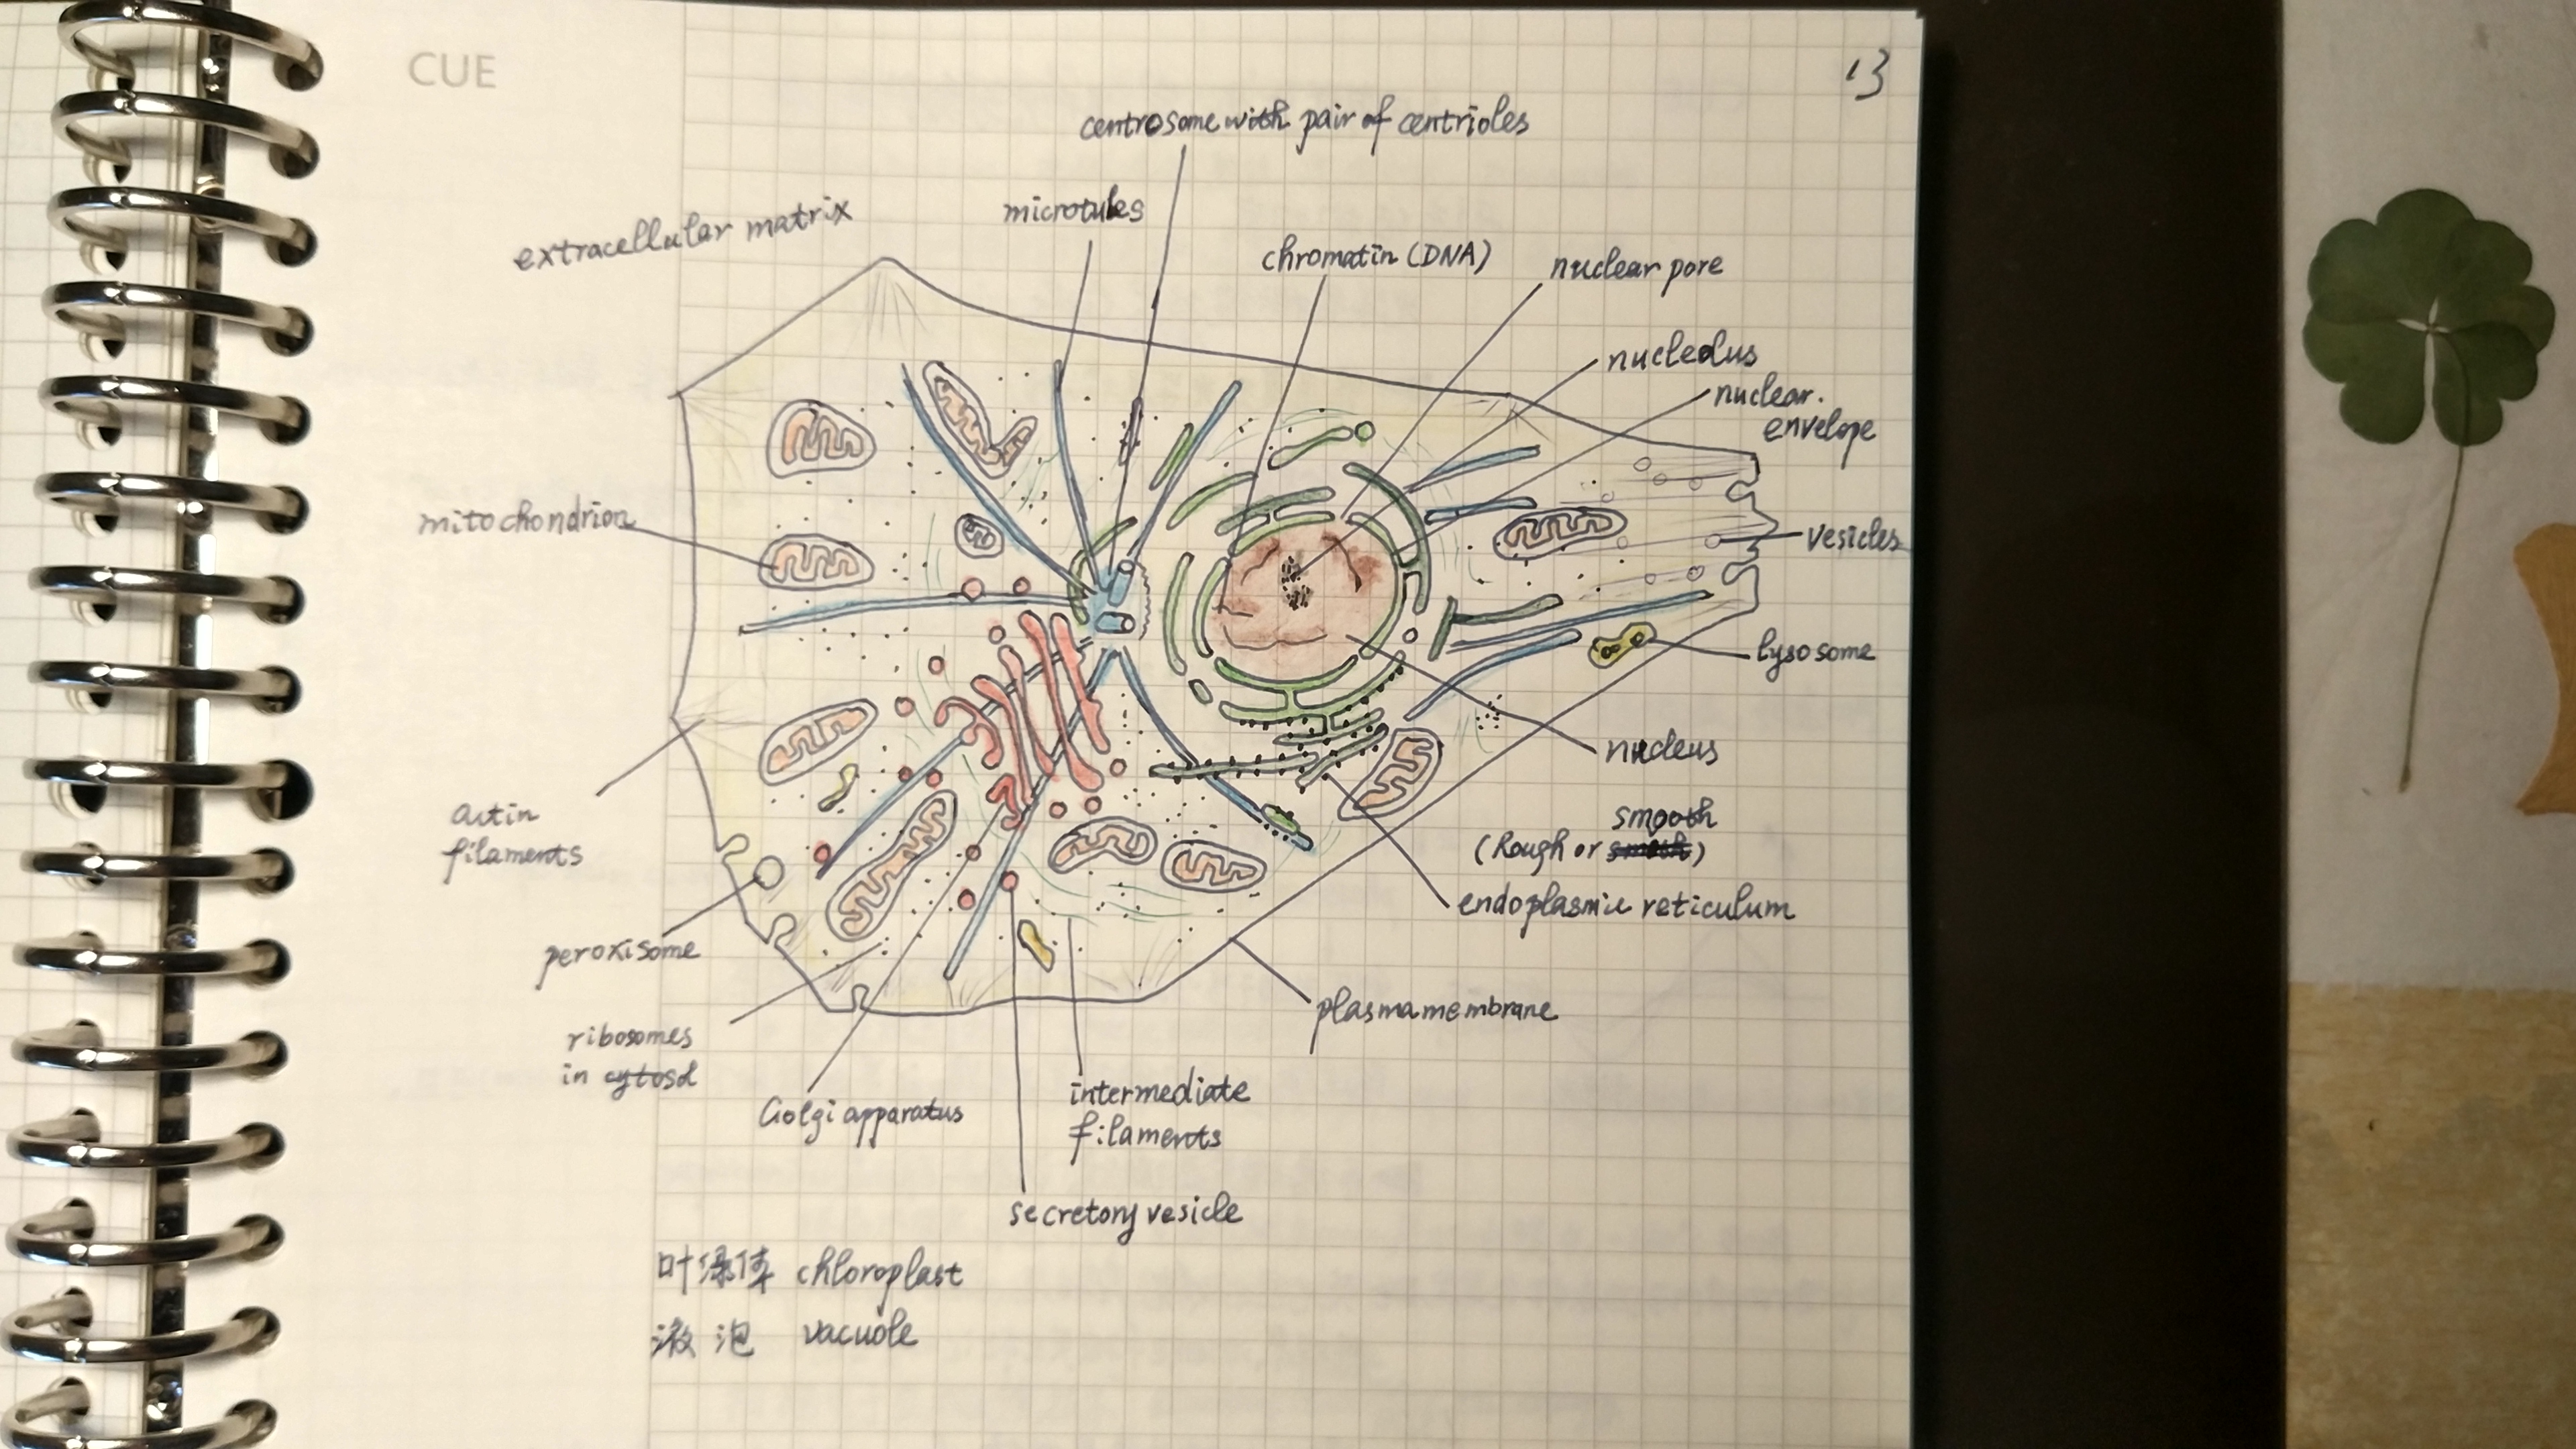 CUE
13
centrosome with pair of centrioles
microtules
extracellular matrix
chromatin (DNA)
nuclear pore
nucleolus
nuclear.
envelope
mitochondrion
vesicles
lysosome
nucleus
actin
filaments
smooth
(Rough or smooth)
endoplasmic reticulum
peroxisome
plasma membrane
ribosomes
in cytosol
Golgi apparatus
intermediate
filaments
secretory vesicle
叶绿体 chloroplast
液泡 vacuole